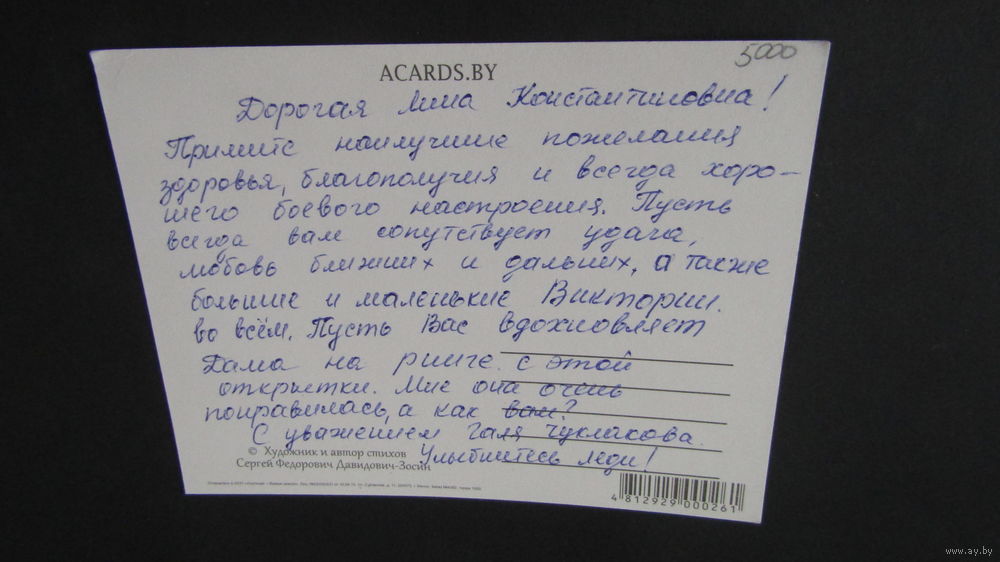 5000
ACARDS.BY
Дорогая Лина Константиновна!
Примите наилучшие пожелания
здоровья, благополучия и всегда хоро-
шего боевого настроения. Пусть
всегда вам сопутствует удача,
любовь ближних и дальних, а также
большие и маленькие Виктории.
во всём. Пусть Вас вдохновляет
Дама на ринге с этой
открытки. Мне она очень
понравилась, а как вам?
С уважением Галя Чуклакова.
© Художник и автор стихов
Улыбнитесь леди!
Сергей Федорович Давидович-Зосин
4 812929 000261
www.ay.by